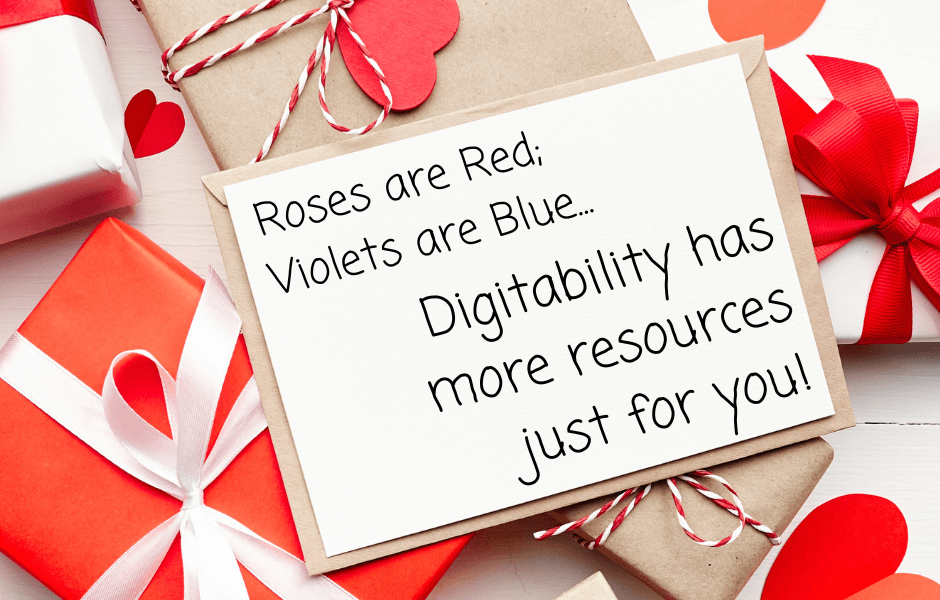 Roses are Red;
Violets are Blue...
Digitability has
more resources
just for you!